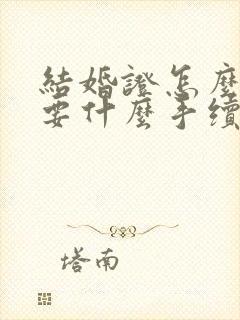 結婚證怎麼
要什麼手續
塔南